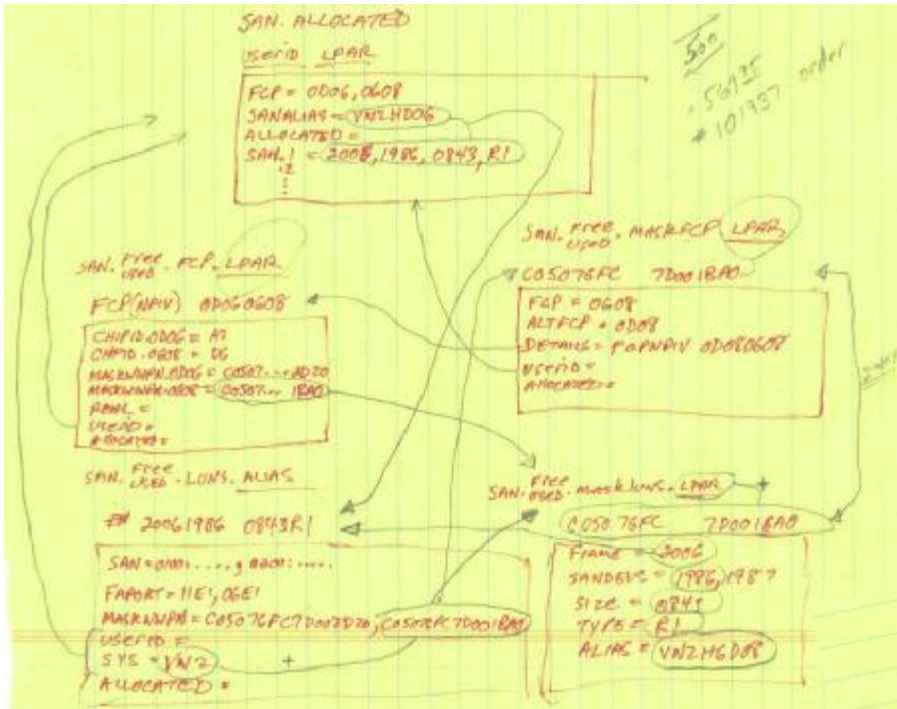 SAN. ALLOCATED
userid LPAR
500
56935
#101937 order
FCP = 0D06,0608
SANALIAS = VN2HD06
ALLOCATED =
SAN.1 = 2006,1986,0843,R1
.2
SAN. Free USED . FCP. LPAR
FCP(NPIV) 0D060608
CHIPID.0D06 = A7
CHPID.0608 = D6
MASKWWPN.0D06 = C0507...2D20
MASKWWPN.0608 = C0507... 1BA0
REAL =
USERID =
ALLOCATED =
SAN. Free USED . MASKFCP LPAR
C05076FC 7D001BA0
FCP = 0608
ALTFCP = 0D08
DETAILS = FCPNPIV 0D080608
USERID =
ALLOCATED =
SAN. Free USED . LUNS. ALIAS
20061986 0843R1
FAPORT = 11E1,06E1
MASKWWPN = C05076FC7D002D20, C05076FC7D001BA0
USERID =
SYS = VN2 +
ALLOCATED =
SAN. Free USED . MASKLUNS. LPAR +
C05076FC 7D001BA0
FRAME = 2006
SANDEVS = 1986,1987
SIZE = 0841
TYPE = R1
ALIAS = VN2HGD08